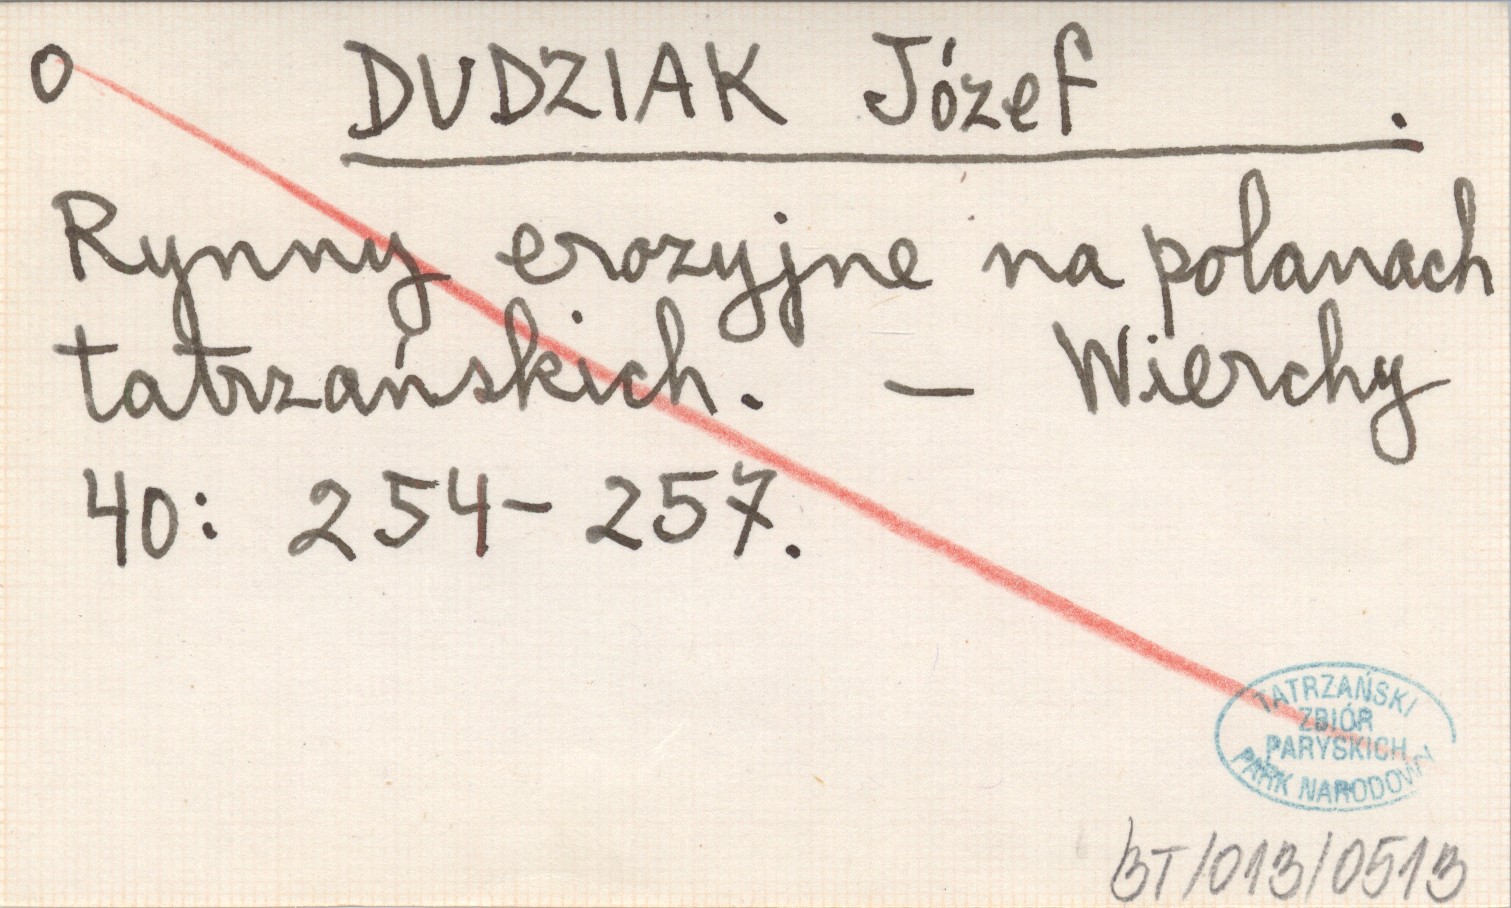 O DUDZIAK Józef .
Rynny erozyjne na polanach
tatrzańskich. – Wierchy
40: 254–257.
TATRZAŃSKI
ZBIÓR
PARYSKICH
PARK NARODOWY
BT/013/0513